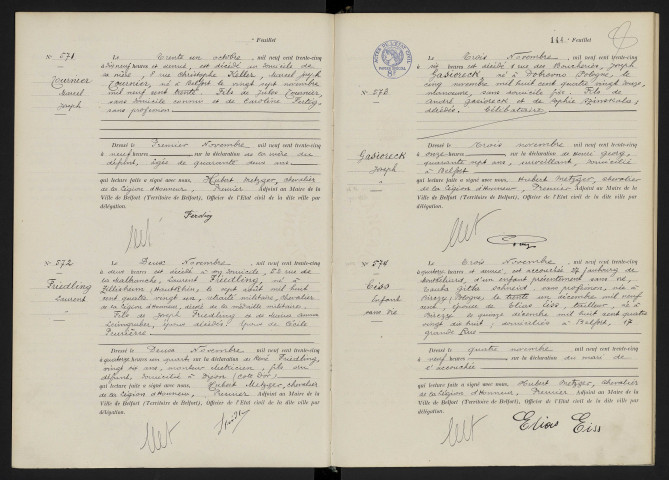 Feuillet
N° 571
Tournier
Marcel
Joseph
Le Trente un octobre, mil neuf cent trente-cinq
à dix neuf heures et demie, est décédé au domicile de
sa mère, 8 rue Christophe Keller, Marcel Joseph
Tournier, né à Belfort le vingt sept novembre
mil neuf cent trente. Fils de Jules Tournier,
sans domicile connu et de Caroline Ferdig,
sans profession
Dressé le Premier Novembre, mil neuf cent trente-cinq
à neuf heures sur la déclaration de la mère du
défunt, âgée de quarante deux ans
qui lecture faite a signé avec nous, Hubert Metzger, chevalier
de la Légion d'Honneur, Premier Adjoint au Maire de la
Ville de Belfort (Territoire de Belfort), Officier de l'Etat civil de la dite ville par
délégation.
Ferdig
N° 572
Friedling
Laurent
Le Deux Novembre, mil neuf cent trente-cinq
à deux heures est décédé à son domicile, 52 rue de
la Savoureuse, Laurent Friedling, né à
le sept août mil huit
cent quatre vingt un, retraité militaire, chevalier
de la Légion d'honneur, décoré de la médaille militaire.
Fils de Joseph Friedling et de Marie Anna
époux décédés. Epoux de Cécile
Dressé le Deux Novembre, mil neuf cent trente-cinq
à quatorze heures un quart sur la déclaration de René Friedling,
vingt six ans, monteur électricien, fils du
défunt domicilié à Dijon (Côte d'Or)
qui lecture faite a signé avec nous, Hubert Metzger, chevalier
de la Légion d'Honneur, Premier Adjoint au Maire de la
Ville de Belfort (Territoire de Belfort), Officier de l'Etat civil de la dite ville par
délégation.
144 Feuillet
N° 573
Gasioreck
Joseph
Le Trois Novembre, mil neuf cent trente-cinq
à six heures est décédé 2 rue des Boucheries, Joseph
Gasioreck, né à Pologne, le
cinq novembre mil huit cent quatre vingt onze,
manœuvre, sans domicile fixe. Fils de
André Gasioreck et de Sophie
décédés. Célibataire
Dressé le Trois novembre, mil neuf cent trente-cinq
à onze heures sur la déclaration de Henri Georg,
quarante sept ans, surveillant, domicilié
à Belfort
qui lecture faite a signé avec nous, Hubert Metzger, chevalier
de la Légion d'Honneur, Premier Adjoint au Maire de la
Ville de Belfort (Territoire de Belfort), Officier de l'Etat civil de la dite ville par
délégation.
N° 574
Eiss
Enfant
sans vie
Le Trois Novembre, mil neuf cent trente-cinq
à quatorze heures et demie, est accouchée 27 faubourg de
Montbéliard, d'un enfant présentement sans vie,
sans profession, née à
Pologne le trente un décembre mil neuf
cent, épouse de Elias Eiss, tailleur, né à
le quinze décembre mil huit cent quatre
vingt dix huit; domiciliés à Belfort, 17
Grande Rue
Dressé le quatre novembre, mil neuf cent trente-cinq
à neuf heures sur la déclaration du mari de
l'accouchée
qui lecture faite a signé avec nous, Hubert Metzger, chevalier
de la Légion d'Honneur, Premier Adjoint au Maire de la
Ville de Belfort (Territoire de Belfort), Officier de l'Etat civil de la dite ville par
délégation.
Elias Eiss